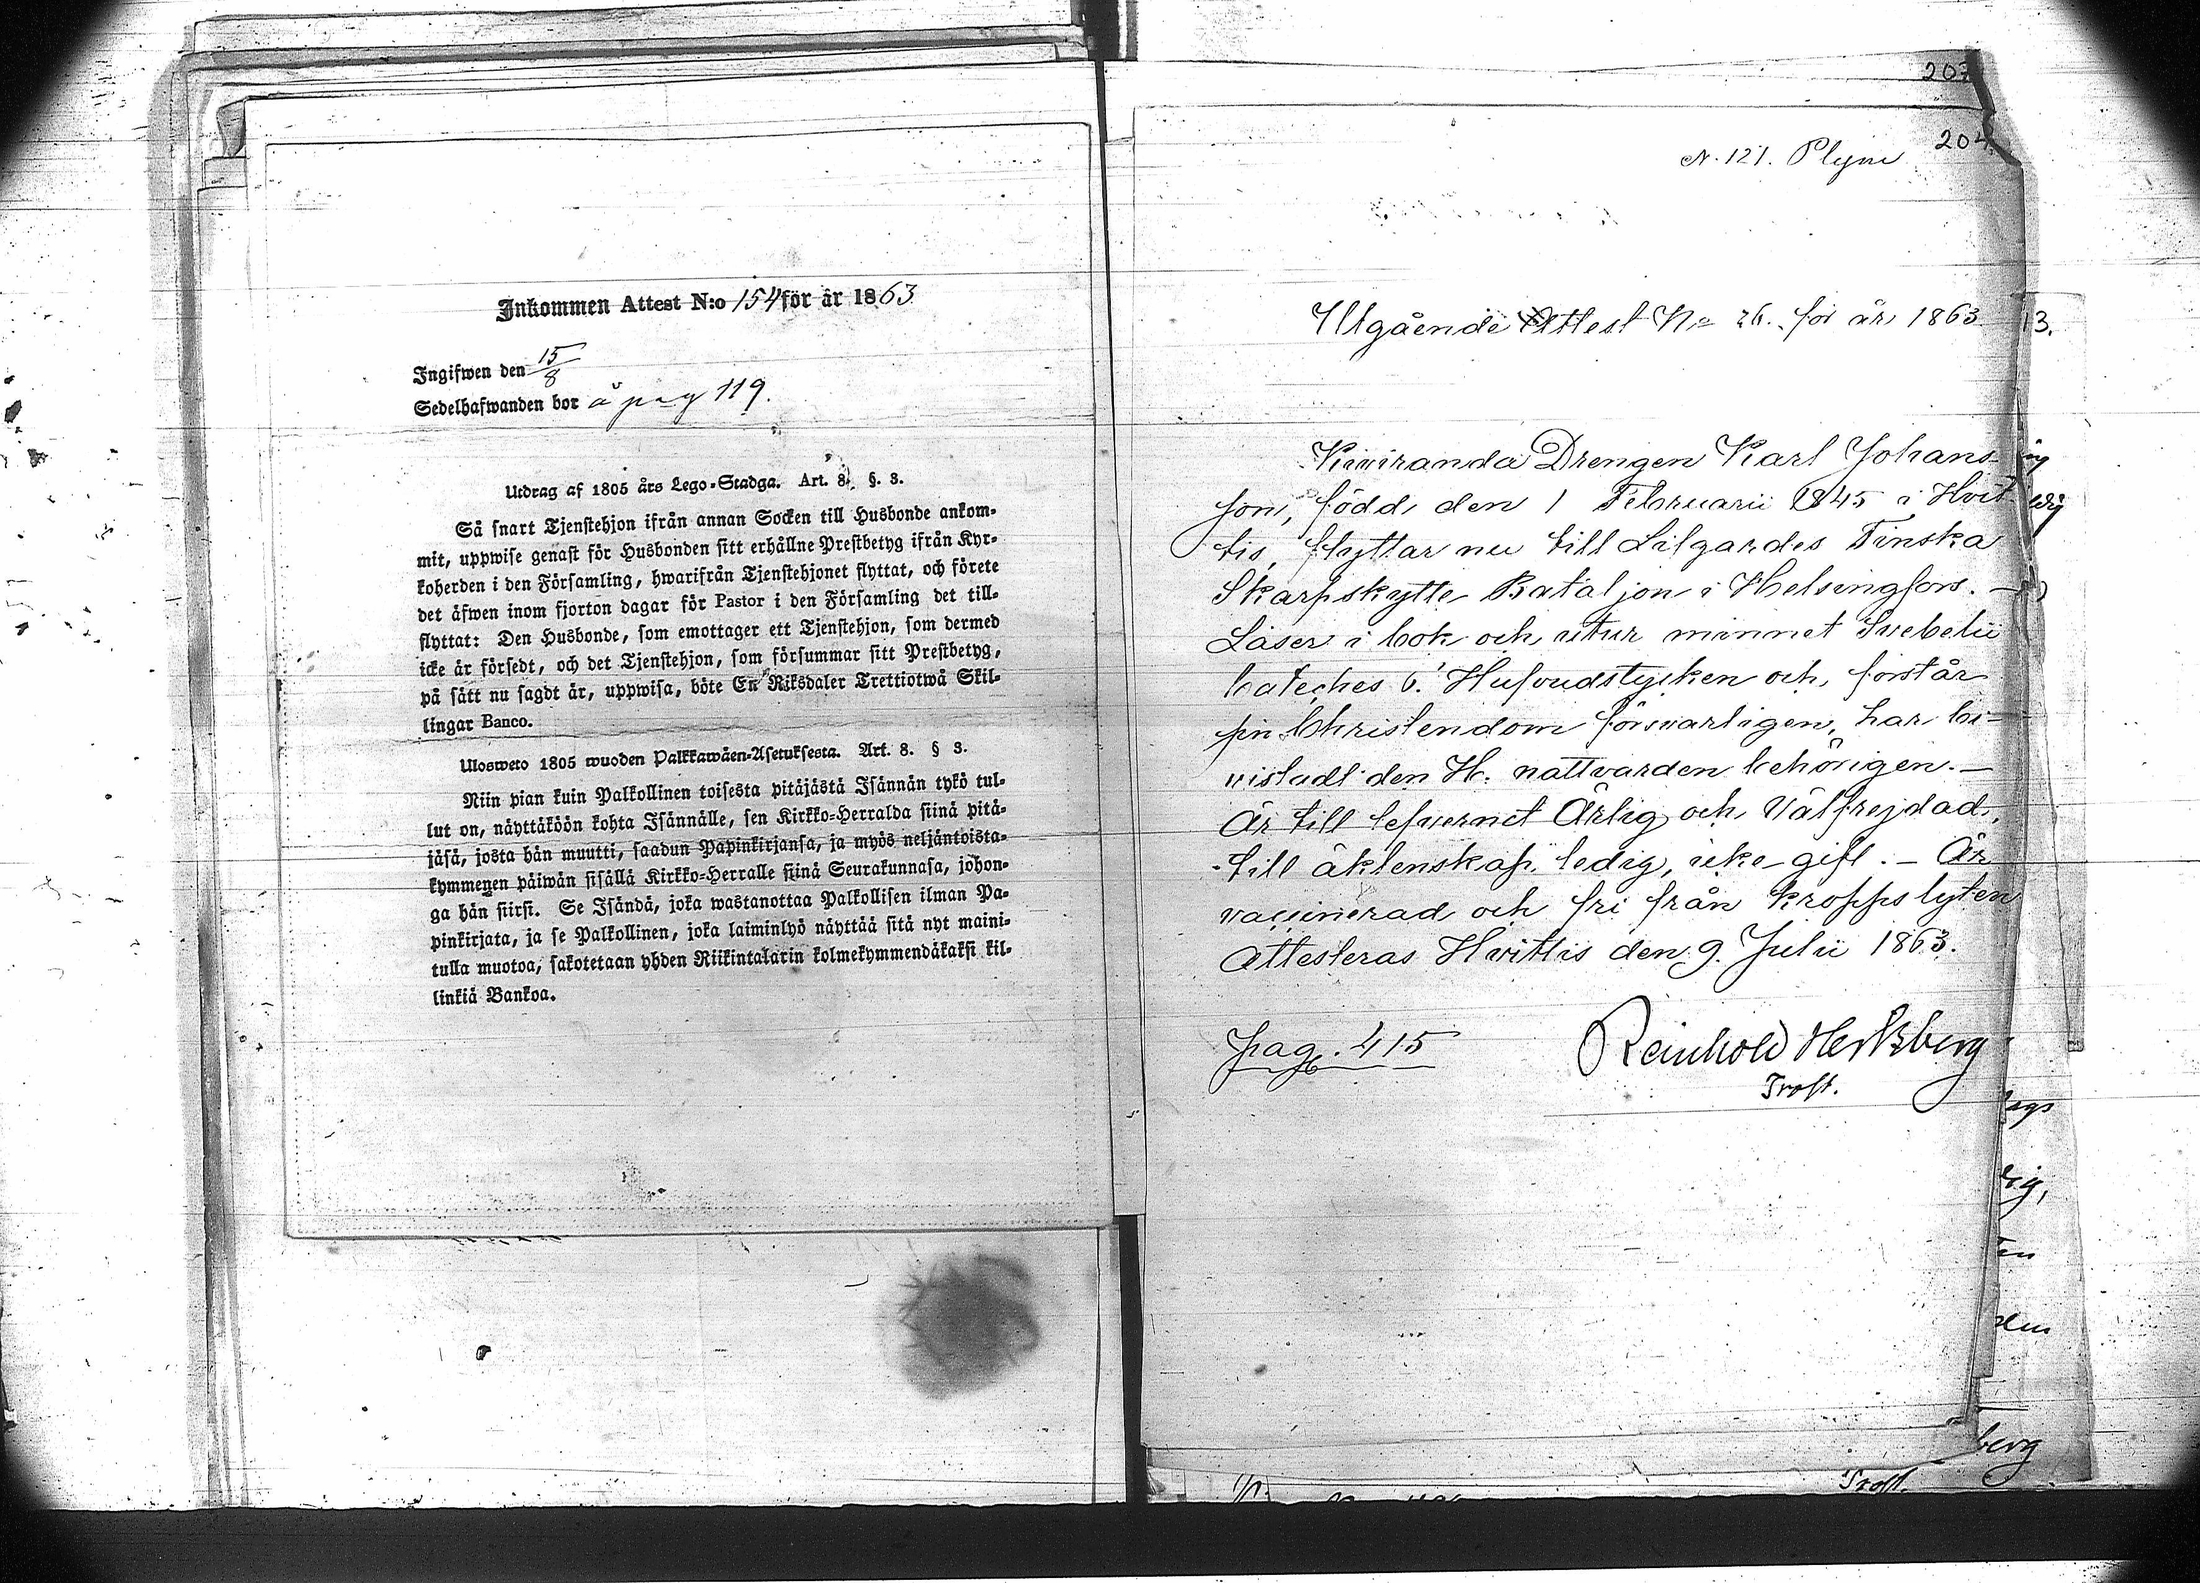 Inkommen Attest N:o 154 för år 1863
Ingifwen den 15/8
Sedelhafwanden bor å pag 119.
Utdrag af 1805 års Lego-Stadga. Art. 8. §. 3.
Så snart Tjenstehjon ifrån annan Socken till Husbonde ankom-
mit, uppwise genast för Husbonden sitt erhållne Prestbetyg ifrån Kyr-
koherden i den Församling, hwarifrån Tjenstehjonet flyttat, och förete
det äfwen inom fjorton dagar för Pastor i den Församling det till-
flyttat: Den Husbonde, som emottager ett Tjenstehjon, som dermed
icke är försedt, och det Tjenstehjon, som försummar sitt Prestbetyg,
på sätt nu sagdt är, uppwisa, böte En Riksdaler Trettiotwå Skil-
lingar Banco.
Ulosweto 1805 wuoden Palkkawäen-Asetuksesta. Art. 8. § 3.
Niin pian kuin Palkollinen toisesta pitäjästä Isännän tykö tul-
lut on, näyttäköön kohta Isännälle, sen Kirkko-Herralda siinä pitä-
jäsä, josta hän muutti, saadun Papinkirjansa, ja myös neljäntoista-
kymmenen päiwän sisällä Kirkko-Herralle siinä Seurakunnasa, johon-
ga hän siirsi. Se Isändä, joka wastanottaa Palkollisen ilman Pa-
pinkirjata, ja se Palkollinen, joka laiminlyö näyttää sitä nyt maini-
tulla muotoa, sakotetaan yhden Riikintalarin kolmekymmendäkaksi kil-
linkiä Bankoa.
203
204
N. 121.
Utgående Attest No 26. för år 1863
Drengen Karl Johans-
son, född den 1 Februarii 1845 i Hvit-
tis, flyttar nu till Lilgardes Finska
Skarpskytte Bataljon i Helsingfors. —
Läser i bok och utur minnet Svebelii
Cateches 6. Hufvudstycken och förstår
sin Christendom försvarligen, har bi-
vistadt den H. nattvarden behörigen. —
Är till lefvernet Ärlig och Välfrejdad,
till äktenskap ledig, icke gift. — Är
vaccinerad och fri från kroppslyten
Attesteras Hvittis den 9. Julii 1863.
pag. 415
Reinhold Hertzberg
Prost.
13.
berg
Prost.